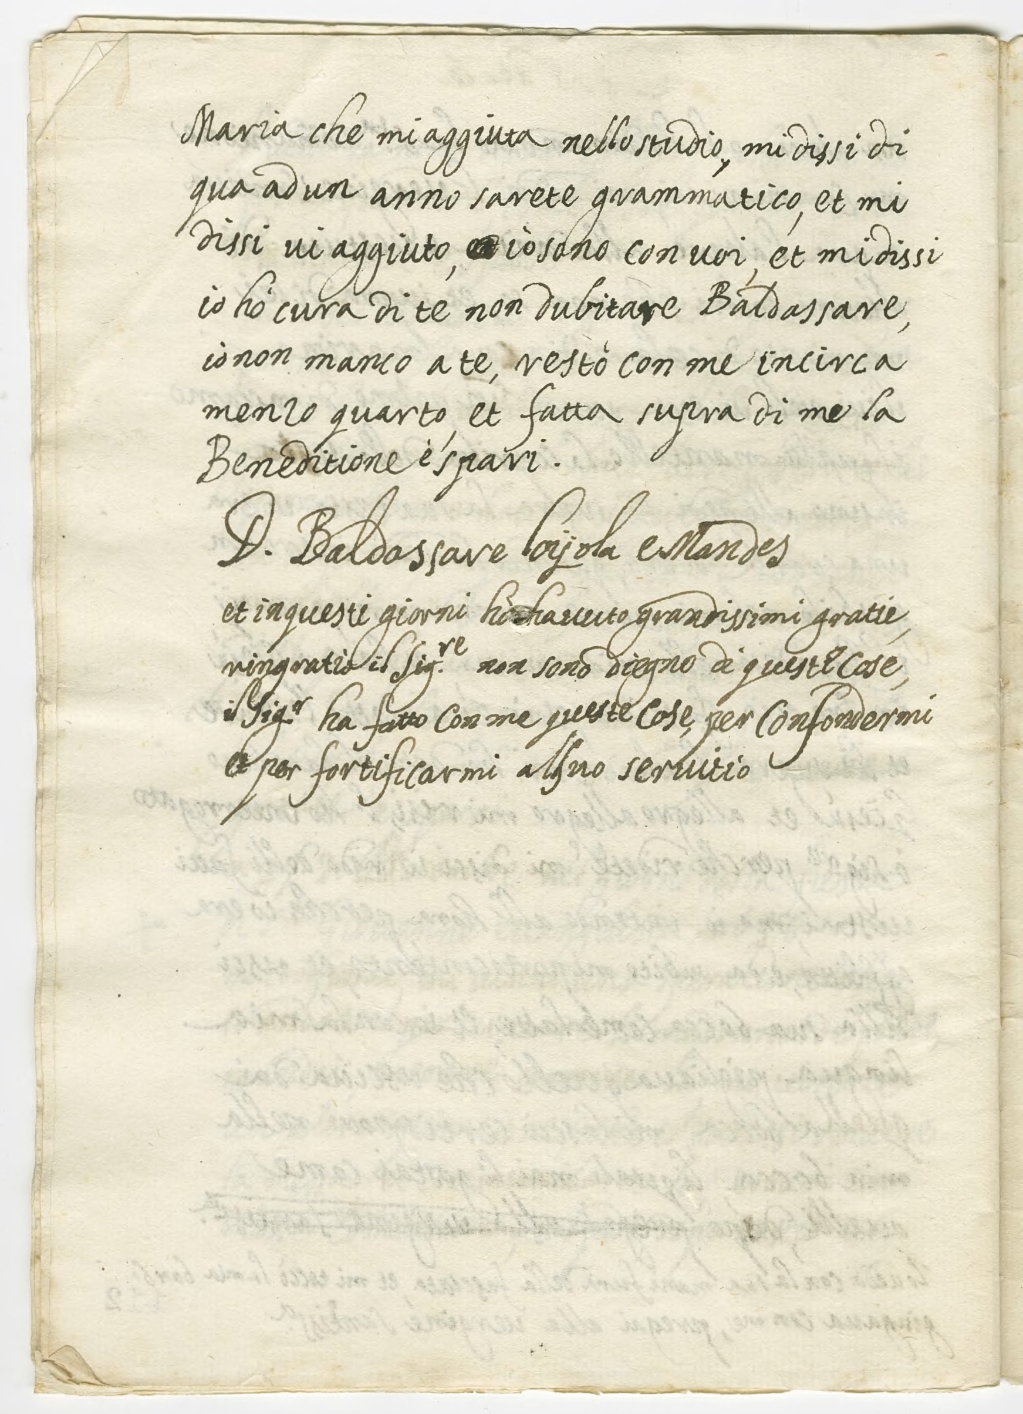 Maria che mi aggiuta nello studio, mi dissi di
qua ad un anno sarete grammatico, et mi
dissi vi aggiuto, io sono con voi, et mi dissi
io hò cura di te non dubitare Baldassare,
io non manco a te, restò con me incirca
menzo quarto, et fatta supra di me la
Beneditione è spari.
D. Baldassare Loijola e Mandes
et in questi giorni hò havuto grandissimi gratie,
ringratio il Sig.re non sono diegno di queste cose,
il Sig.r ha fatto con me queste cose, per confondermi
et per fortificarmi al suo servitio